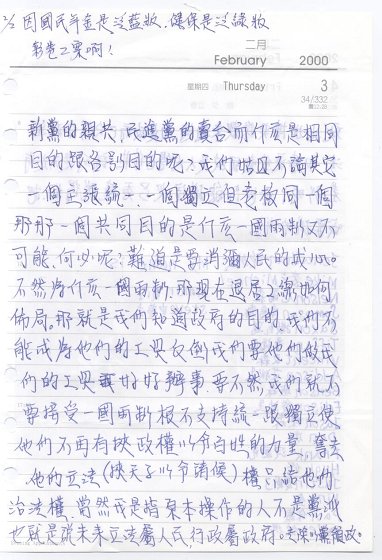 ½ 因國民年金是泛藍版.健保是泛綠版
彩卷工眾啊!
二月
February 2000
星期四 Thursday 3
34/332
新黨的親共,民進黨的賣台而什麼是相同
目的跟各別目的呢?我們姑且不論其它
一個主張統一.一個獨立但老板同一個
那那一個共同目的是什麼一國兩制又不
可能.何必呢?難道是要消彌人民的戒心。
不然為什麼一國兩制.那現在退居二線如何
佈局。那就是我們知道政府的目的.我們不
能成為他們的工具反倒我們要他們做我
們的工具好好辦事.要不然我們就不
要接受一國兩制根本不支持統一跟獨立使
他們不再有挾政權以令百姓的力量.奪去
他的立法(挾天子以令諸侯)權只給他們
治法權.當然我是指幕本操作的人不是黨派
也就是說未來立法屬人民,行政屬政府.